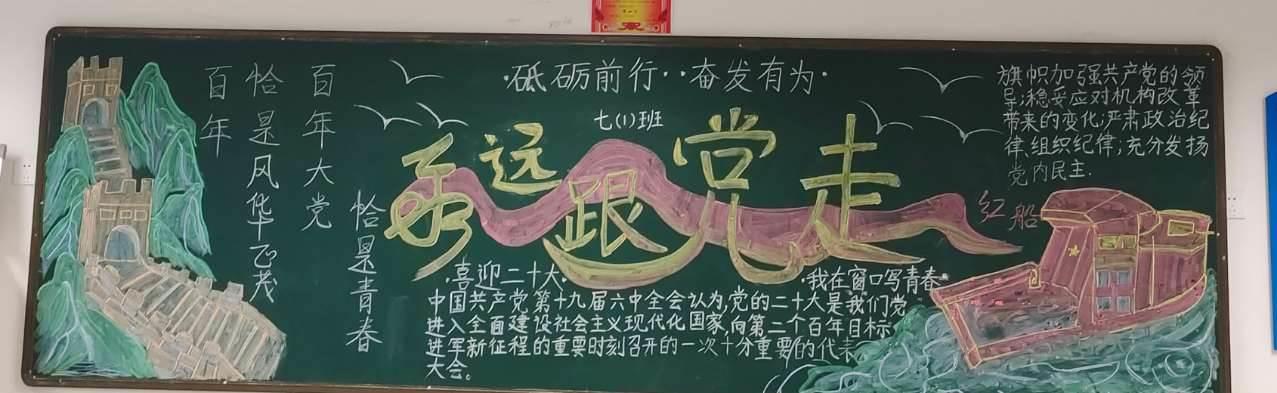 ·砥砺前行··奋发有为·
七(1)班
永远跟党走
百年大党
恰是风华正茂
百年
恰是青春
旗帜加强共产党的领
导;稳妥应对机构改革
带来的变化;严肃政治纪
律、组织纪律;充分发扬
党内民主.
红船
·喜迎二十大·
·我在窗口写青春·
中国共产党第十九届六中全会认为,党的二十大是我们党
进入全面建设社会主义现代化国家,向第二个百年目标
进军新征程的重要时刻召开的一次十分重要的代表
大会。